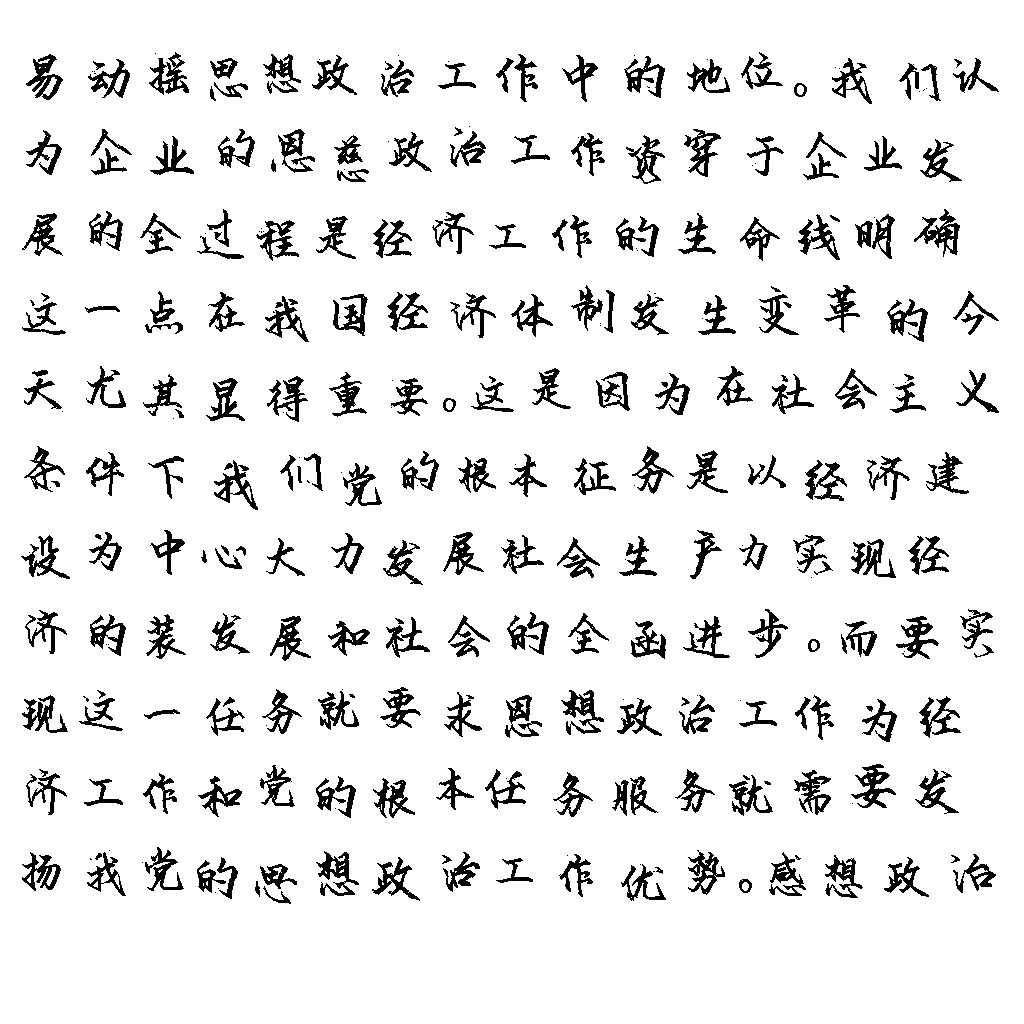 易动摇思想政治工作中的地位。我们认
为企业的恩慈政治工作资穿于企业发
展的全过程是经济工作的生命线明确
这一点在我国经济体制发生变革的今
天尤其显得重要。这是因为在社会主义
条件下我们党的根本征务是以经济建
设为中心大力发展社会生产力实现经
济的装发展和社会的全函进步。而要实
现这一任务就要求恩想政治工作为经
济工作和党的根本任务服务就需要发
扬我党的思想政治工作优势。感想政治